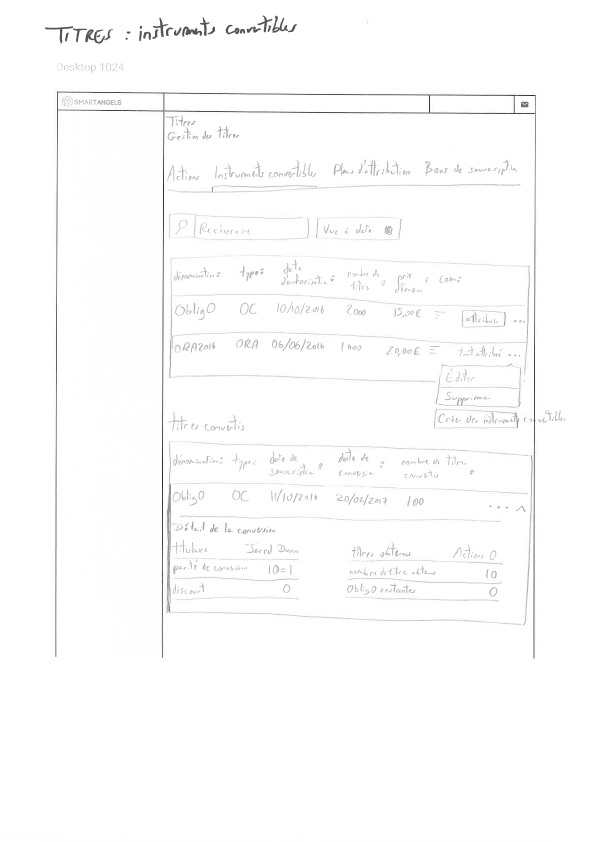 TITRES : instruments convertibles
Desktop 1024
SMARTANGELS
Titres
Gestion des titres
Actions Instruments convertibles Plans d'attribution Bons de souscription
Recherche Vue à date
dénomination type date d'autorisation nombre de titres prix d'émission com.
ObligO OC 10/10/2016 2000 15,00€ attribuer ...
ORA2016 ORA 06/06/2016 1000 20,00€ tout attribué ...
Éditer
Supprimer
Créer des instruments convertibles
titres convertis
dénomination type date de souscription date de conversion nombre de titres convertis
ObligO OC 11/10/2016 20/02/2017 100 ...
Détail de la conversion
titulaire Jared Dunn titres obtenus Actions O
parité de conversion 10=1 nombre de titres obtenus 10
discount 0 ObligO restantes 0